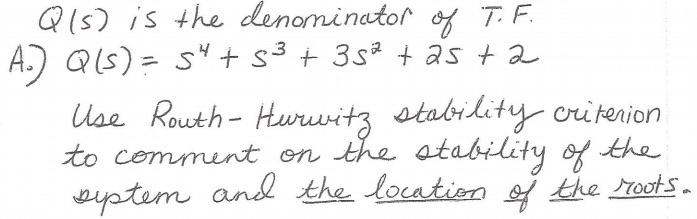 Q(s) is the denominator of T.F.
A.) Q(s) = s⁴ + s³ + 3s² + 2s + 2
Use Routh-Hurwitz stability criterion
to comment on the stability of the
system and the location of the roots.